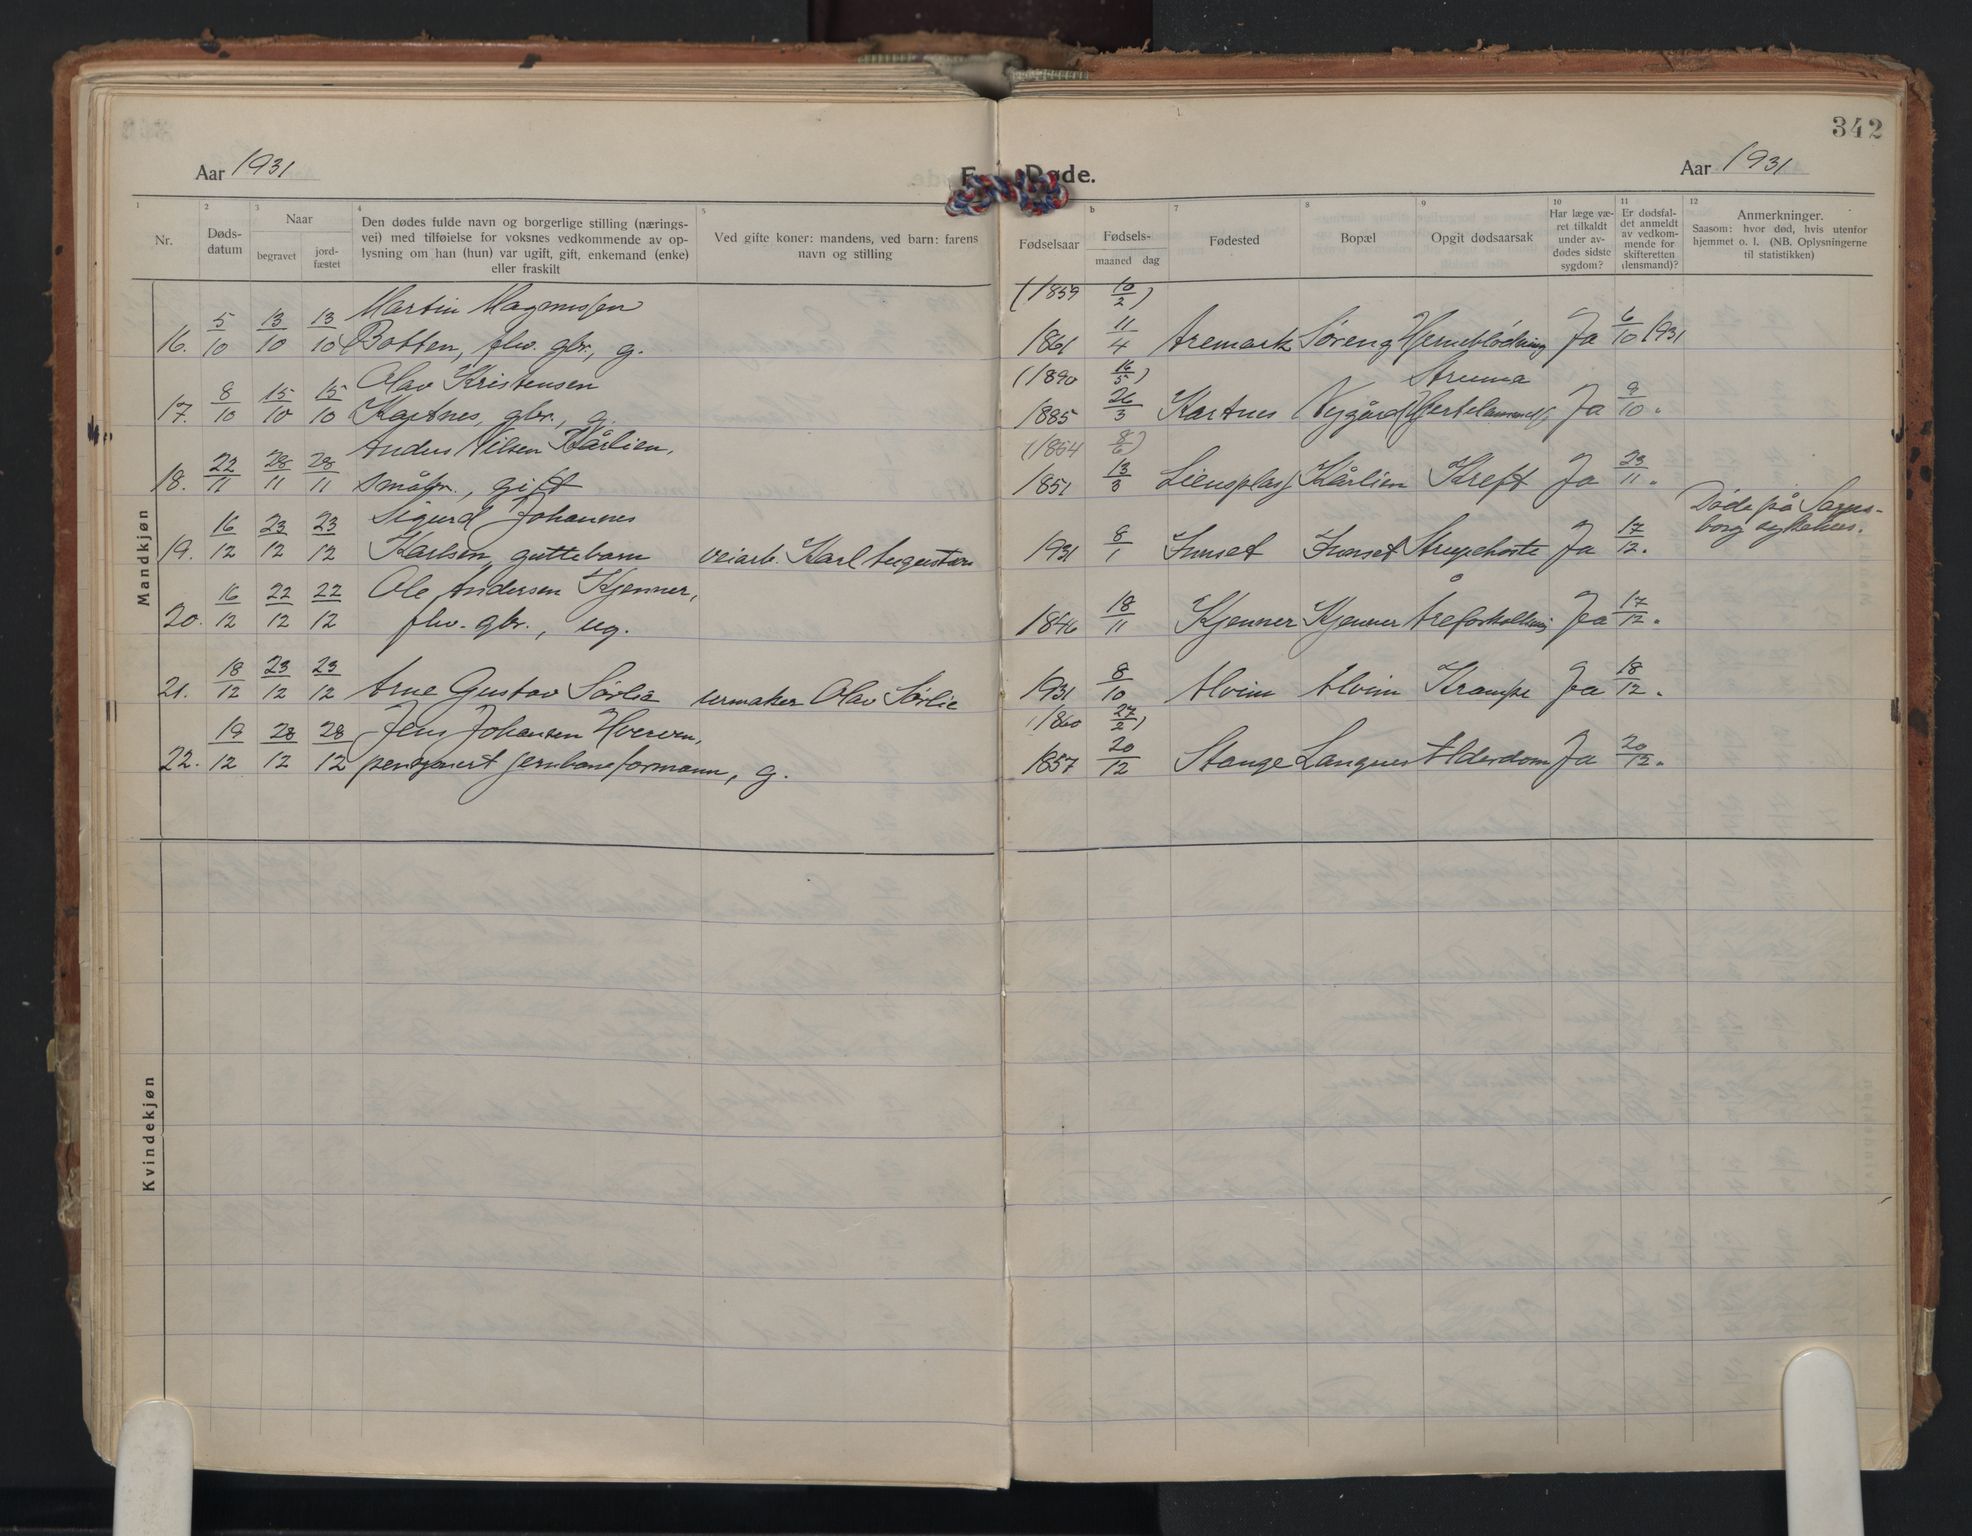 342
Aar 1931 Døde. Aar 1931
1 2 3 4 5 b 7 8 9 10 11 12
Nr. Døds-datum Naar begravet jord-fæstet Den dødes fulde navn og borgerlige stilling (nærings-vei) med tilføielse for voksnes vedkommende av op-lysning om han (hun) var ugift, gift, enkemand (enke) eller fraskilt Ved gifte koner: mandens, ved barn: farens navn og stilling Fødselsaar Fødsels- maaned dag Fødested Bopæl Opgit dødsaarsak Har læge væ-ret tilkaldt under av-dødes sidste sygdom? Er dødsfal-det anmeldt av vedkom-mende for skifteretten (lensmand)? Anmerkninger. Saasom: hvor død, hvis utenfor hjemmet o. l. (NB. Oplysningerne til statistikken)
Mandkjøn
Martin Magnussen (1859 10/2)
16. 5/10 13/10 13/10 Botten, fhv. gbr., g. 1861 11/4 Aremark Søreng Hjerneblødning Ja 6/10 1931
Olav Kristensen (1890 16/5) Struma
17. 8/10 15/10 15/10 Kartnes, gbr., g. 1885 26/3 Kartnes Nygård Ja 9/10 "
Anders Nilsen Kårlien, (1854 8/6)
18. 22/11 28/11 28/11 småbr., gift 1851 13/3 Liensplass Kårlien Kreft Ja 23/11 "
Sigurd Johannes Døde på Sarps-
19. 16/12 23/12 23/12 Karlsen, guttebarn veiarb. Karl Augustsen 1931 8/1 Junset Junset Strupehoste Ja 17/12 " borg sykehus.
Ole Andersen Kjenner,
20. 16/12 22/12 22/12 fhv. gbr., ug. 1846 18/11 Kjenner Kjenner Åreforkalkning Ja 17/12 "
21. 18/12 23/12 23/12 Arne Gustav Sørlie urmaker Olav Sørlie 1931 8/10 Alvim Alvim Krampe Ja 18/12 "
Jens Johansen Hverven, (1860 27/2)
22. 19/12 28/12 28/12 pensjonert jernbaneformann, g. 1857 20/12 Stange Langnes Alderdom Ja 20/12 "
Kvindekjøn